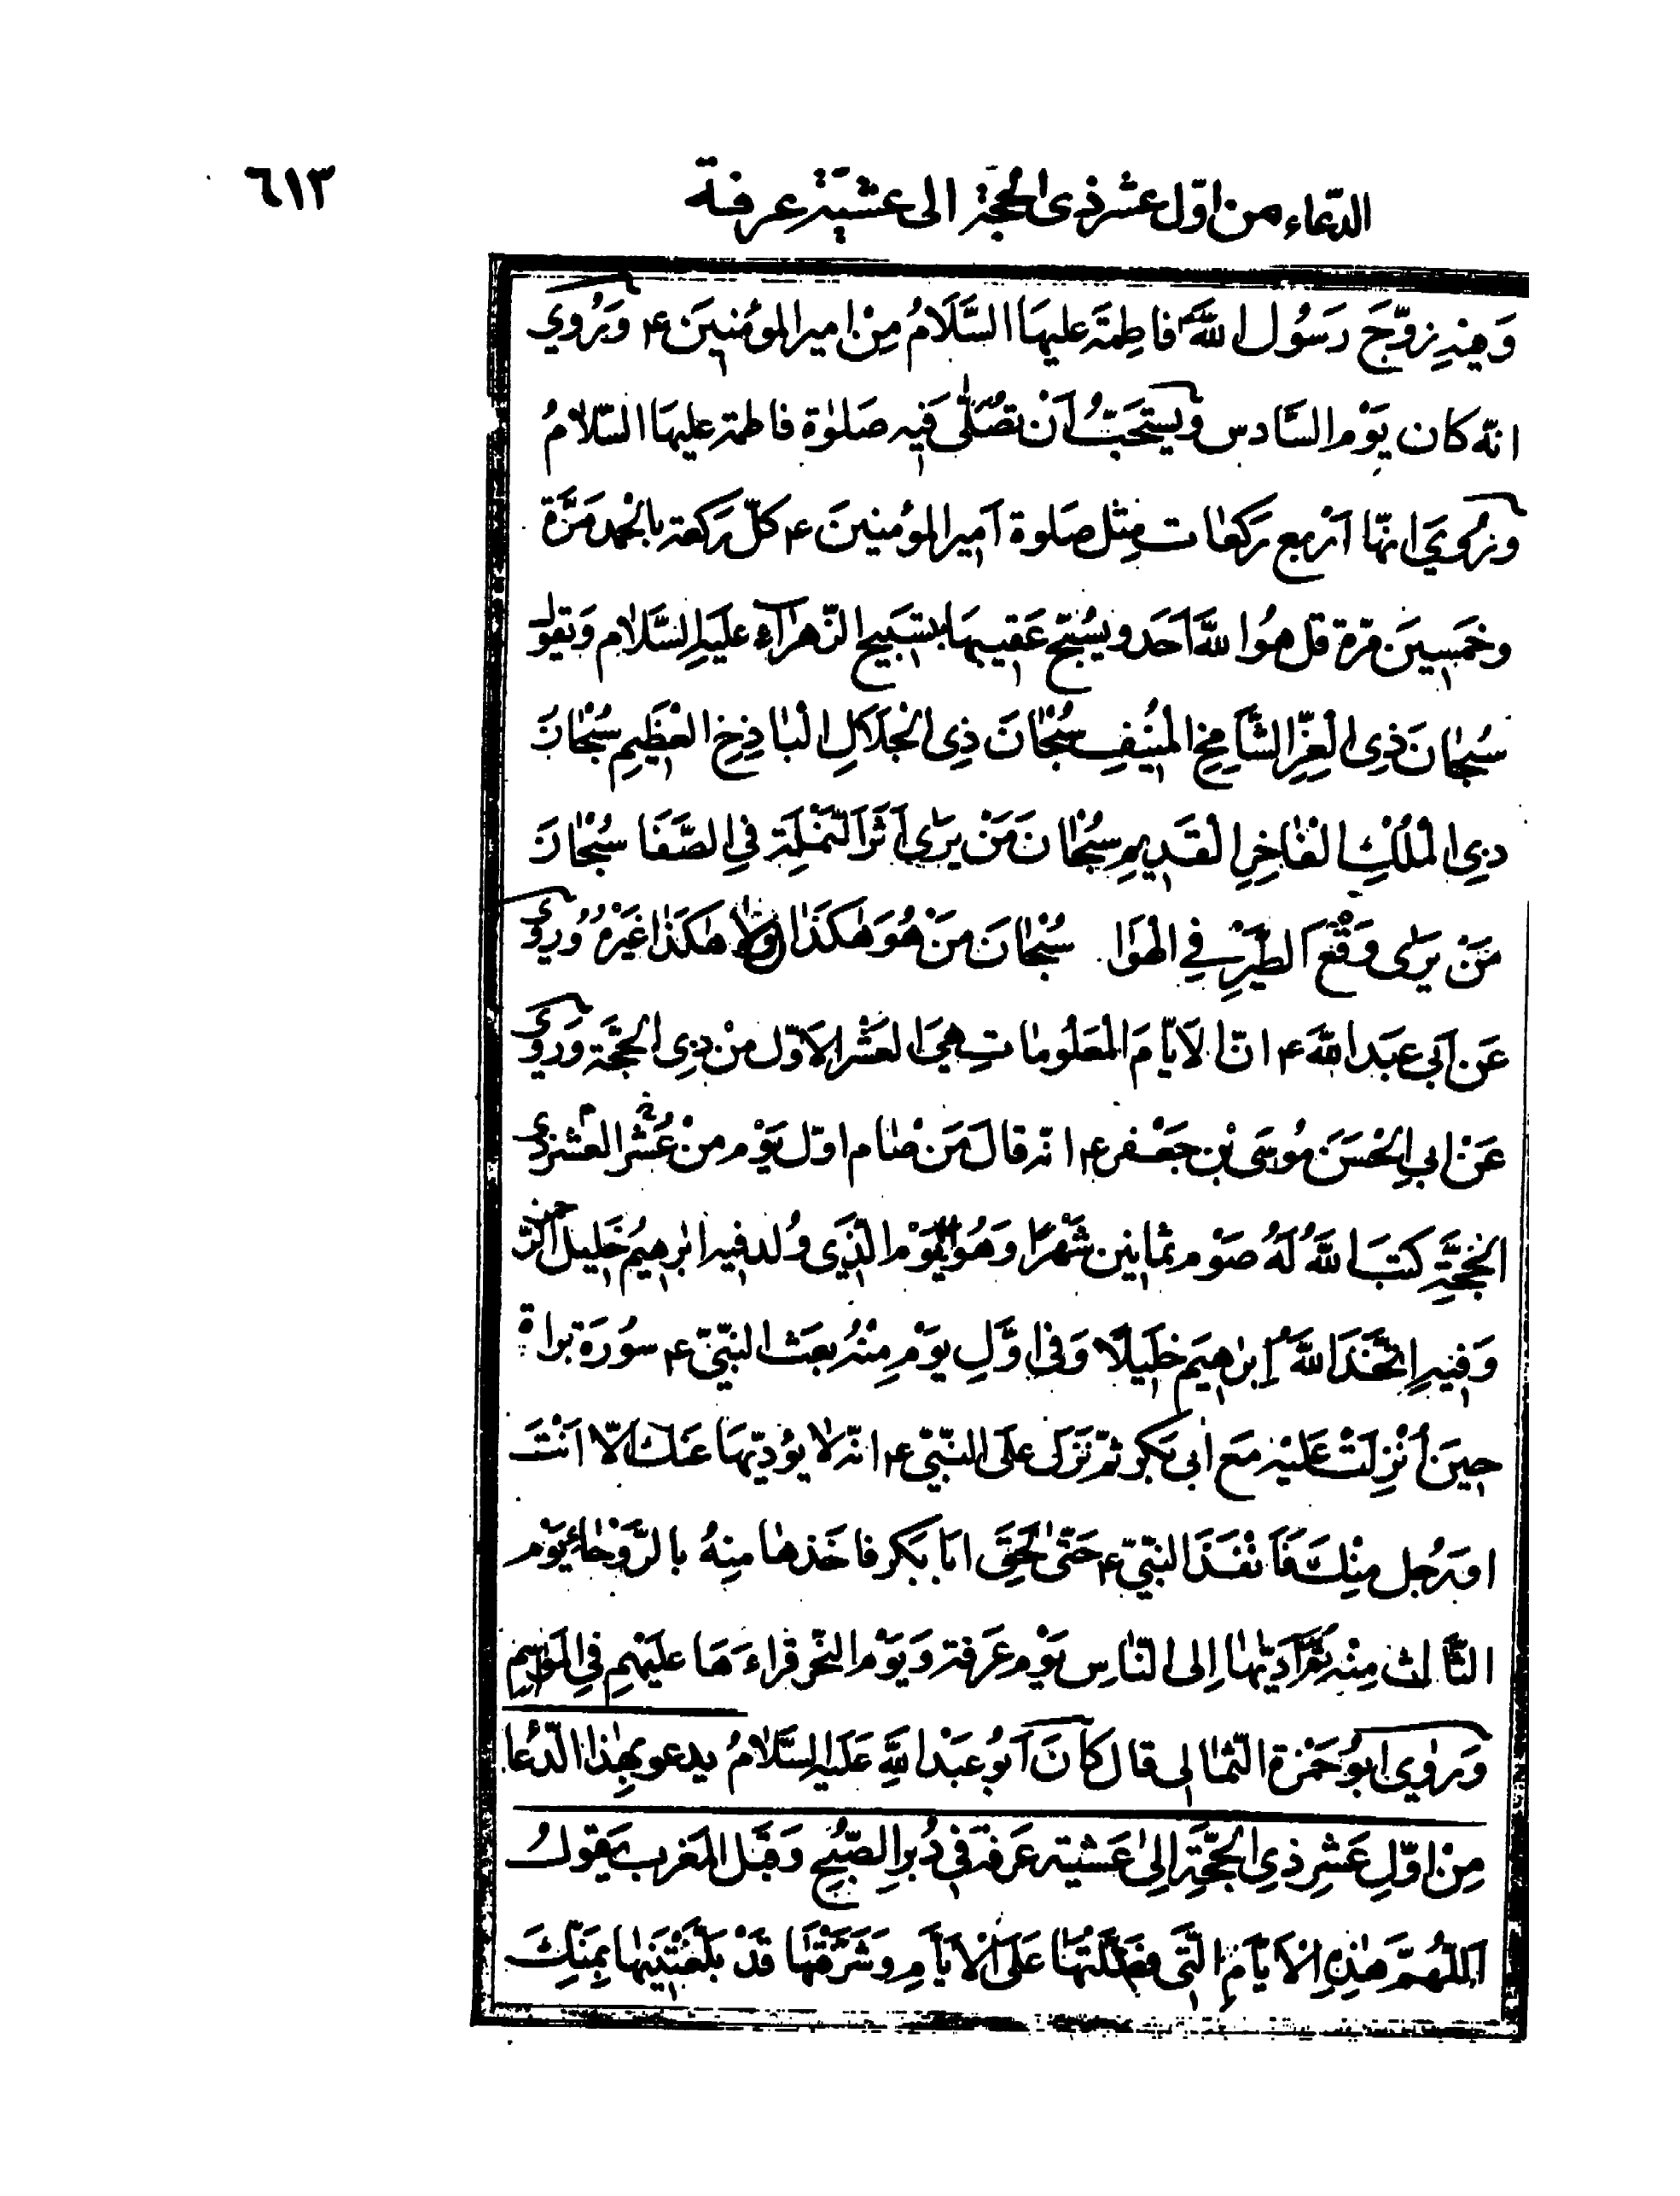 الدّعاء من اوّل عشر ذى الحجّة الى عشيّة عرفة
٦١٣
وَفيهِ زوّجَ رَسُول اللهِ ص فاطِمَةَ عليهَا السَّلَامُ مِنْ امير المؤمنينَ ع وَرُوِيَ
انّه كان يَوْم السَّادس وَيستحَبُّ اَنْ تصُلّى فيه صَلوٰة فاطمة عليهَا السّلامُ
وَرُوِيَ انّها اَربع رَكعٰات مِثل صَلوة اَمير المؤمنينَ ع كلّ رَكعة بالحْمد مَرَّة
وخمَسِينَ مرّة قل هوُ اللهَُ اَحَد ويسُبّح عَقيبهَا بتسَبيح الزّهرَآءِ عليَهِا السَّلام وَيقول
سُبحٰانَ ذِى العِزِّ الشَّامِخِ المُنيفِ سُبْحٰانَ ذِى الْجَلاَلِ البٰاذِخِ العَظيمِ سُبْحٰانَ
ذِى الْمُلْكِ الفٰاخِرِ الْقَديمِ سُبْحٰانَ مَنْ يَرَىٰ اَثَرَ النّمْلَةِ فِى الصَّفَا سُبْحٰانَ
مَنْ يَرىٰ وَقْعَ الطَّيْرِ فِي الْهَوَا سُبْحٰانَ مَنْ هُوَ هٰكَذٰا وَلاٰ هٰكَذٰا غَيْرُهُ وَرُوِيَ
عَن اَبى عبَد اللهَ ع انّ الاَيّامَ المَعْلوُماتِ هِيَ العَشْر الاَوّل منْ ذِى الحجّة وَرُوِيَ
عَنْ ابى الحْسَنَ موُسَى بْن جَعْفر ع انّه قالَ مَن صٰام اوّل يَوْم منْ عَشْر العشر ذى
الحْجَّةِ كتبَ اللهَُ لَهُ صَوْم ثمانين شَهْرًا وَهوَُ اليَوْم الّذى وُلد فيه ابرٰهيمُ خَليل الرّحمن
وَفيهِ اتَّخَذَ اللهَُ اِبرٰهيمَ خَليلًا وَفى اوَّلِ يَوْمٍ مِنْهُ بعَث النبّىّ ع سوُرَة براة
حينَ اُنْزِلَتْ عَليْه مَع اَبى بَكر ثمّ نَزل علَى النّبىّ ع انّه لا يؤدّيهَا عَنك الّا اَنتَ
او رَجُل مِنْكَ فَاَنْفَذَ النبّىّ ع حَتّىٰ لَحِقَ ابَا بَكر فاخَذهٰا مِنهُ بالرَّوْحٰاءِ يَوْم
الثّالث مِنْه ثمّ اَدّيٰهٰا اِلى النّاسِ يَوْم عَرَفة وَيَوْم النّحر قراءَهَا علَيْهِم فِى المَوَاسِم
وَرَوٰى ابوُ حَمْزة الثّمٰالى قال كاٰنَ اَبوُ عَبْد اللهَِ عَلَيهِ السَّلامُ يدعو بهٰذا الدّعٰا
مِنْ اوّلِ عَشْرِ ذىِ الحجَّةِ اِلىٰ عَشيّةِ عَرفة فى دُبرِ الصّبْحِ وَقبَل المَغرب يَقولُ
اَللّهُمَّ هٰذِهِ الاَيّامُ الَّتى فضّلْتَهٰا عَلَى الاَيّامِ وَشَرَّفْتَهٰا قَدْ بَلَّغْتَنيهٰا بِمَنِّكَ